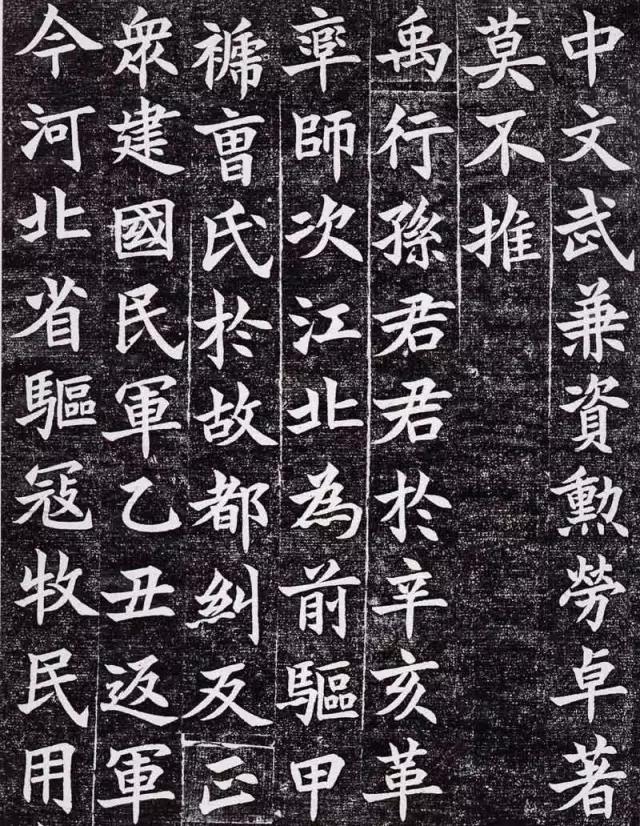 中文武兼資勳勞卓著
莫不推
禹行孫君君於辛亥革
率師次江北為前驅甲
褫曺氏於故都糾反正
眾建國民軍乙丑返軍
今河北省驅冦牧民用